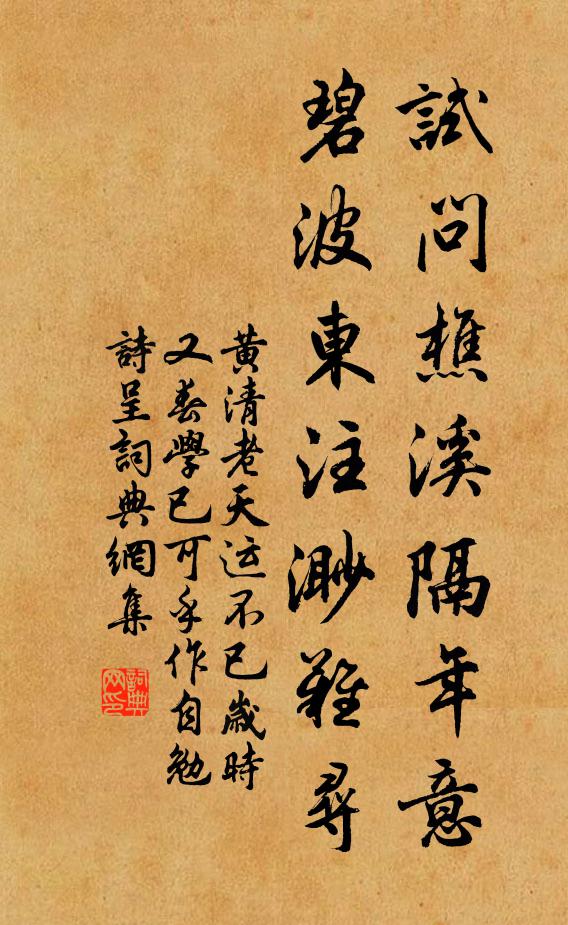 試問樵溪隔年意
碧波東注渺難尋
黃清老天运不已歲時
又春學已可乎作自勉
詩呈詞典網集
詞典
网印